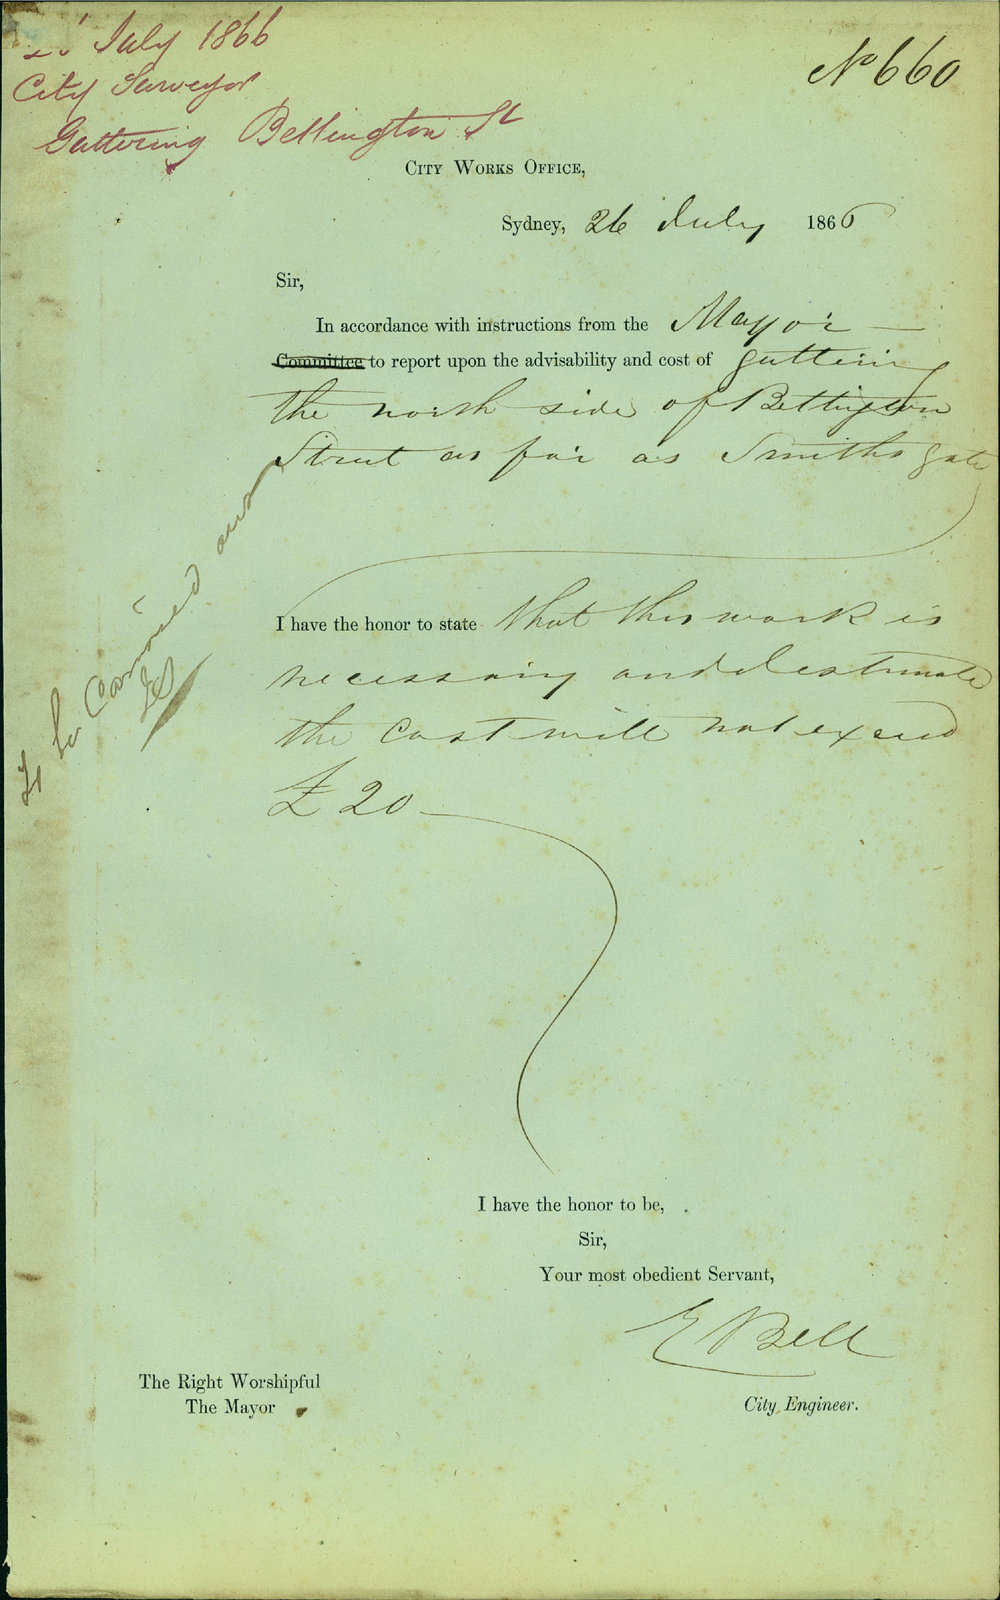 July 1866
City Surveyor
Guttering Bettington St
No 660
CITY WORKS OFFICE,
Sydney, 26 July 1866
Sir,
In accordance with instructions from the Mayor —
Committee to report upon the advisability and cost of guttering
the north side of Bettington
Street as far as Smiths gate
I have the honor to state that this work is
necessary and I estimate
the cost will not exceed
£20
To be carried out
I have the honor to be,
Sir,
Your most obedient Servant,
E Bell
City Engineer.
The Right Worshipful
The Mayor